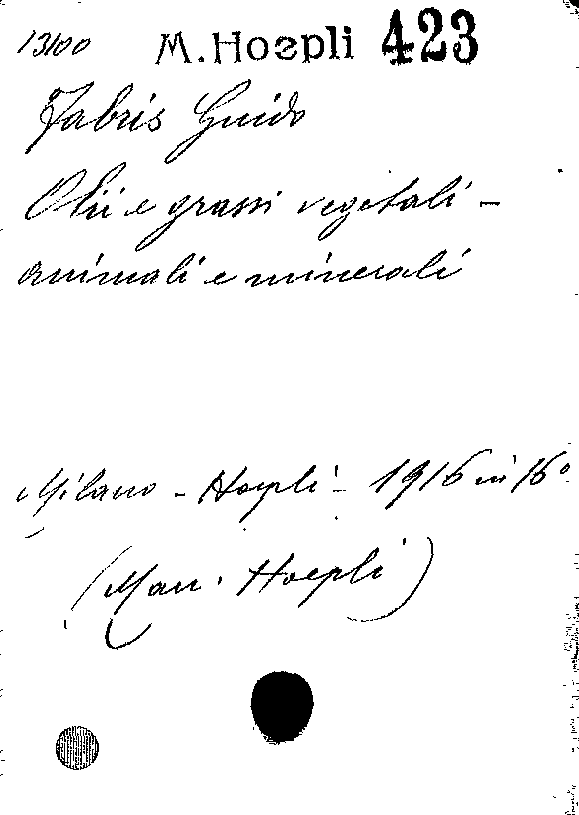 13100 M. Hoepli 423
Fabris Guido
Olii e grassi vegetali -
animali e minerali
Milano - Hoepli - 1916 in 16°
(Man. Hoepli)